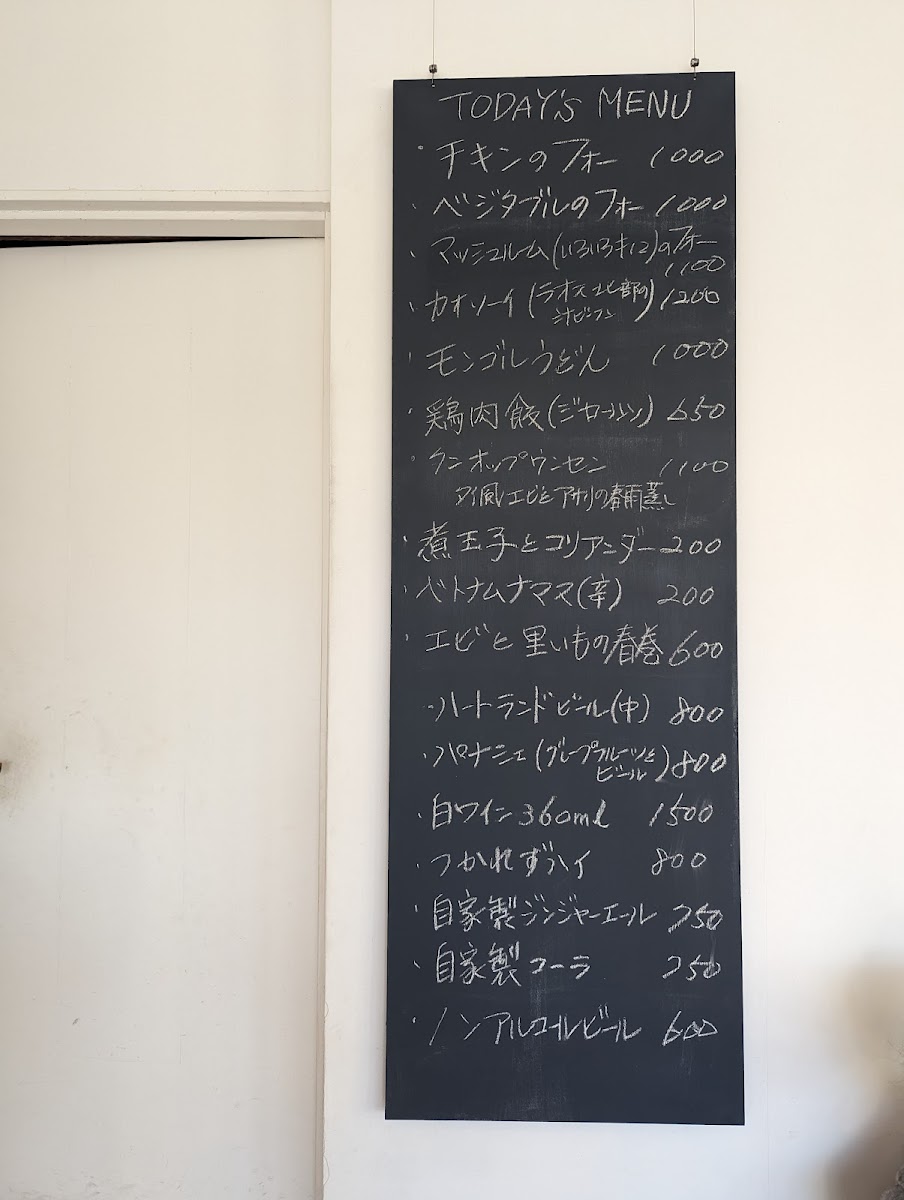 TODAY'S MENU
・チキンのフォー 1000
・ベジタブルのフォー 1000
・マッシュルーム(いろいろキノコ)のフォー
1100
・カオソーイ(ラオス北部の 1200
汁ビーフン)
・モンゴルうどん 1000
・鶏肉餃(ジャローズルソ) 650
・クンオップウンセン 1100
タイ風エビとアサリの春雨蒸し
・煮玉子とコリアンダー 200
・ベトナムナマス(辛) 200
・エビと里いもの春巻 600
・ハートランドビール(中) 800
・パナシェ(グレープフルーツと
ビール)800
・白ワイン360ml 1500
・つかれずハイ 800
・自家製ジンジャーエール 750
・自家製コーラ 750
・ノンアルコールビール 600